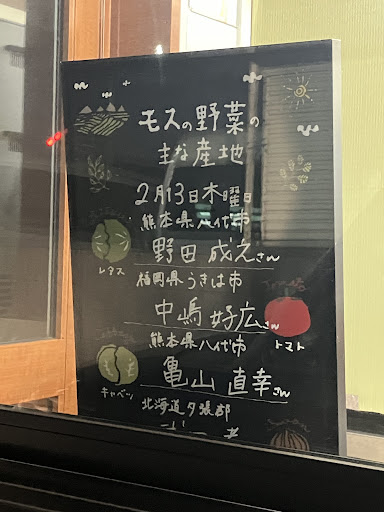 モスの野菜の
主な産地
2月13日木曜日
熊本県八代市
レタス
野田 成えさん
福岡県うきは市
中嶋 好広さん
トマト
熊本県八代市
キャベツ
亀山 直幸さん
北海道夕張郡